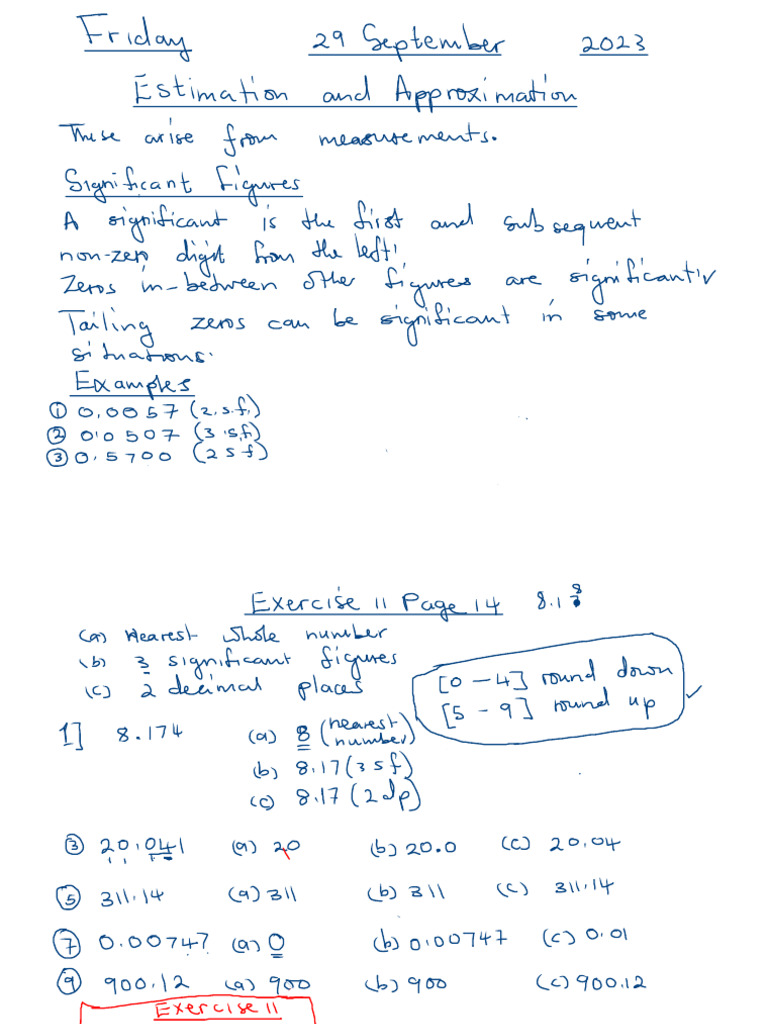 Friday 29 September 2023
Estimation and Approximation
These arise from measurements.
Significant Figures
A significant is the first and subsequent
non-zero digit from the left.
Zeros in-between other figures are significant.
Tailing zeros can be significant in some
situations.
Examples
① 0.0057 (2.s.f.)
② 0.0507 (3.s.f)
③ 0.5700 (2 s f)
Exercise 11 Page 14 8.1
(a) Nearest whole number
(b) 3 significant figures
(c) 2 decimal places
[0 – 4] round down
[5 – 9] round up ✓
1] 8.174 (a) 8 (nearest number)
(b) 8.17 (3 s f)
(c) 8.17 (2 dp)
③ 20.041 (a) 20 (b) 20.0 (c) 20.04
⑤ 311.14 (a) 311 (b) 311 (c) 311.14
⑦ 0.00747 (a) 0 (b) 0.00747 (c) 0.01
⑨ 900.12 (a) 900 (b) 900 (c) 900.12
Exercise 11